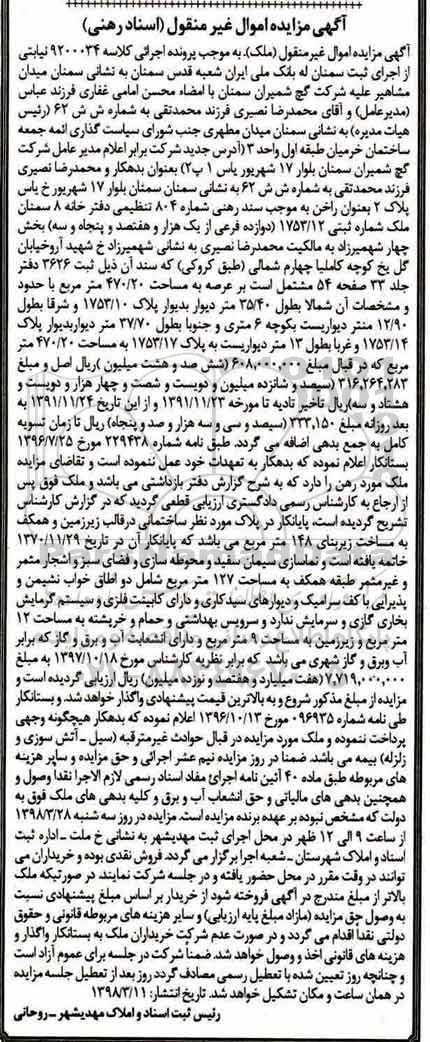 آگهی مزایده اموال غیر منقول (اسناد رهنی)
آگهی مزایده اموال غیرمنقول (ملک). به موجب پرونده اجرائی کلاسه ۹۲۰۰۰۳۴ نیابتی
از اجرای ثبت سمنان له بانک ملی ایران شعبه قدس سمنان به نشانی سمنان میدان
مشاهیر علیه شرکت گچ شمیران سمنان با امضاء محسن امامی غفاری فرزند عباس
(مدیرعامل) و آقای محمدرضا نصیری فرزند محمدتقی به شماره ش ش ۶۲ (رئیس
هیات مدیره) به نشانی سمنان میدان مطهری جنب شورای سیاست گذاری ائمه جمعه
ساختمان خرمیان طبقه اول واحد ۳(آدرس جدید شرکت برابر اعلام مدیر عامل شرکت
گچ شمیران سمنان بلوار ۱۷ شهریور یاس ۱ پ۲) بعنوان بدهکار و محمدرضا نصیری
فرزند محمدتقی به شماره ش ش ۶۲ به نشانی سمنان سمنان بلوار ۱۷ شهریور خ یاس
پلاک ۲ بعنوان راهن به موجب سند رهنی شماره ۸۰۴ تنظیمی دفتر خانه ۸ سمنان
ملک شماره ثبتی ۱۷۵۳/۱۲ (دوازده فرعی از یک هزار و هفتصد و پنجاه و سه) بخش
چهار شهمیرزاد به مالکیت محمدرضا نصیری به نشانی شهمیرزاد خ شهید آروخیابان
گل یخ کوچه کاملیا چهارم شمالی (طبق کروکی) که سند آن ذیل ثبت ۳۶۲۶ دفتر
جلد ۳۳ صفحه ۵۴ مشتمل است بر عرصه به مساحت ۴۷۰/۲۰ متر مربع با حدود
و مشخصات آن شمالا بطول ۳۵/۴۰ متر دیوار بدیوار پلاک ۱۷۵۳/۱۰ و شرقا بطول
۱۲/۹۰ منتر دیواریست بکوچه ۶ متری و جنوبا بطول ۳۷/۷۰ متر دیواربدیوار پلاک
۱۷۵۳/۱۴ و غربا بطول ۱۳ متر دیواریست به پلاک ۱۷۵۳/۱۷ به مساحت ۴۷۰/۲۰ متر
مربع که در قبال مبلغ ۶۰۸,۰۰۰,۰۰۰ (شش صد و هشت میلیون )ریال اصل و مبلغ
۳۱۶,۲۶۴,۲۸۳ (سیصد و شانزده میلیون و دویست و شصت و چهار هزار و دویست و
هشتاد و سه)ریال تاخیر تادیه تا مورخه ۱۳۹۱/۱۱/۲۳ و از این تاریخ ۱۳۹۱/۱۱/۲۴ به
بعد روزانه مبلغ ۳۳۳,۱۵۰ (سیصد و سی و سه هزار و صد و پنجاه) ریال تا زمان تسویه
کامل به جمع بدهی اضافه می گردد. طبق نامه شماره ۲۲۹۴۳۸ مورخ ۱۳۹۶/۷/۲۵
بستانکار اعلام نموده که بدهکار به تعهدات خود عمل ننموده است و تقاضای مزایده
ملک مورد رهن را دارد که به شرح گزارش دفتر بازداشتی می باشد و ملک فوق پس
از ارجاع به کارشناس رسمی دادگستری ارزیابی قطعی گردید که در گزارش کارشناس
تشریح گردیده است، پایانکار در پلاک مورد نظر ساختمانی درقالب زیرزمین و همکف
به مساحت زیربنای ۱۴۸ متر مربع می باشد که پایانکار آن در تاریخ ۱۳۷۰/۱۱/۲۹
خاتمه یافته است و نماسازی سیمان سفید و محوطه سازی و فضای سبز و اشجار مثمر
و غیرمثمر طبقه همکف به مساحت ۱۲۷ متر مربع شامل دو اطاق خواب نشیمن و
پذیرایی با کف سرامیک و دیوارهای سفیدکاری و دارای کابینت فلزی و سیستم گرمایش
بخاری گازی و سرمایش ندارد و سرویس بهداشتی و حمام و خرپشته به مساحت ۱۲
متر مربع و زیرزمین به مساحت ۹ متر مربع و دارای انشعابت آب و برق و گاز که برابر
آب وبرق و گاز شهری می باشد که برابر نظریه کارشناس مورخ ۱۳۹۷/۱۰/۱۸ به مبلغ
۷,۷۱۹,۰۰۰,۰۰۰(هفت میلیارد و هفتصد و نوزده میلیون) ریال ارزیابی گردیده است و
مزایده از مبلغ مذکور شروع و به بالاترین قیمت پیشنهادی واگذار خواهد شد. و بستانکار
طی نامه شماره ۰۹۶۹۳۵ مورخ ۱۳۹۶/۱۰/۱۳ اعلام نموده که بدهکار هیچگونه وجهی
پرداخت ننموده و ملک مورد مزایده در قبال حوادث غیرمترقبه (سیل ـ آتش سوزی و
زلزله) بیمه می باشد. ضمنا در روز مزایده نیم عشر اجرائی و حق مزایده و سایر هزینه
های مربوطه طبق ماده ۴۰ آئین نامه اجرائ مفاد اسناد رسمی لازم الاجرا نقدا وصول و
همچنین بدهی های مالیاتی و حق انشعاب آب و برق و کلیه بدهی های ملک فوق به
دولت که مشخص نبوده بر عهده برنده مزایده است. مزایده در روز سه شنبه ۱۳۹۸/۳/۲۸
از ساعت ۹ الی ۱۲ ظهر در محل اجرای ثبت مهدیشهر به نشانی خ ملت ـ اداره ثبت
اسناد و املاک شهرستان ـ شعبه اجرا برگزار می گردد. فروش نقدی بوده و خریداران می
توانند در وقت مقرر در محل حضور یافته و در جلسه شرکت نمایند. در صورتیکه ملک
بالاتر از مبلغ مندرج در آگهی فروخته شود از خریدار بر اساس مبلغ پیشنهادی نسبت
به وصول حق مزایده (مازاد مبلغ پایه ارزیابی) و سایر هزینه های مربوطه قانونی و حقوق
دولتی نقدا اقدام می گردد و در صورت عدم شرکت خریداران ملک به بستانکار واگذار و
هزینه های قانونی اخذ و وصول خواهد شد. ضمنا شرکت در جلسه برای عموم آزاد است
و چنانچه روز تعیین شده با تعطیل رسمی مصادف گردد روز بعد از تعطیل جلسه مزایده
در همان ساعت و مکان تشکیل خواهد شد. تاریخ انتشار: ۱۳۹۸/۳/۱۱
رئیس ثبت اسناد و املاک مهدیشهر ـ روحانی